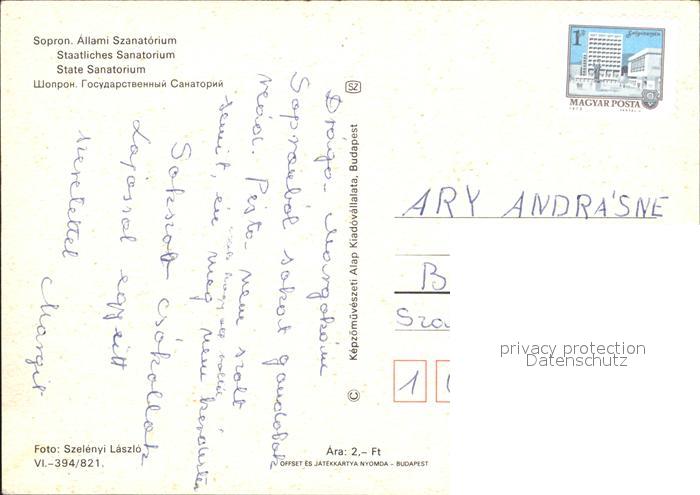 Sopron. Állami Szanatórium
Staatliches Sanatorium
State Sanatorium
Шопрон. Государственный Санаторий
Drága Margókám
Sopronból sokat gondolok
reád. Pista nem szólt
semmit, én meg nem kérdeztem
Sokszor csókollak
Lajossal együtt
szeretettel Margit
SZ
© Képzőművészeti Alap Kiadóvállalata, Budapest
1 Ft
Salgótarján
MAGYAR POSTA
ARY ANDRÁSNÉ
B
Sza
1
privacy protection
Datenschutz
Foto: Szelényi László
VI.–394/821.
Ára: 2,– Ft
OFFSET ÉS JÁTÉKKÁRTYA NYOMDA – BUDAPEST